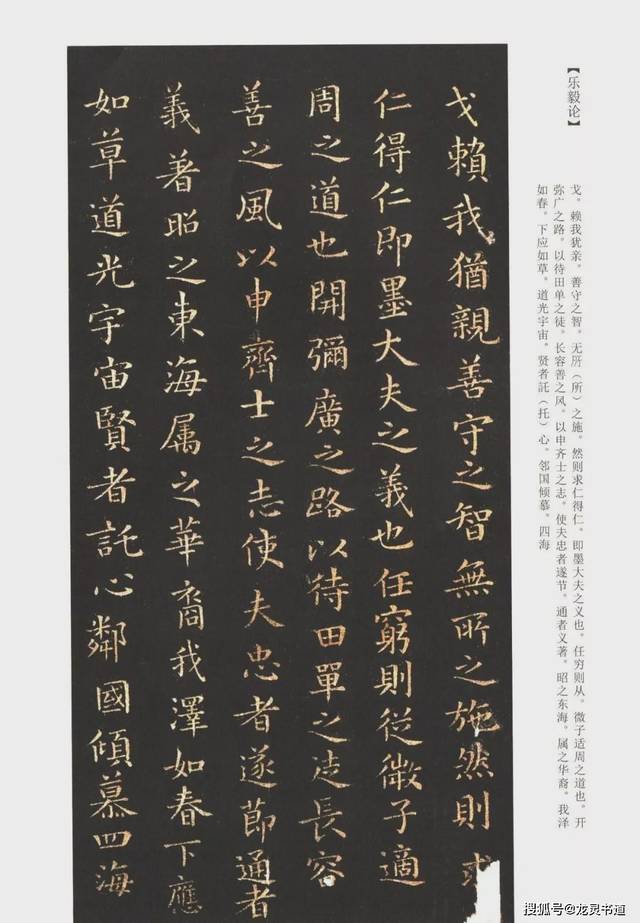 【乐毅论】
戈。赖我犹亲。善守之智。无所（所）之施。然则求仁得仁。即墨大夫之义也。任穷则从。微子适周之道也。开
弥广之路。以待田单之徒。长容善之风。以申齐士之志。使夫忠者遂节。通者义著。昭之东海。属之华裔。我泽
如春。下应如草。道光宇宙。贤者託（托）心。邻国倾慕。四海
戈賴我猶親善守之智無所之施然則求
仁得仁即墨大夫之義也任窮則從微子適
周之道也開彌廣之路以待田單之徒長容
善之風以申齊士之志使夫忠者遂節通者
義著昭之東海属之華裔我澤如春下應
如草道光宇宙賢者託心鄰國傾慕四海
搜狐号@龙灵书道